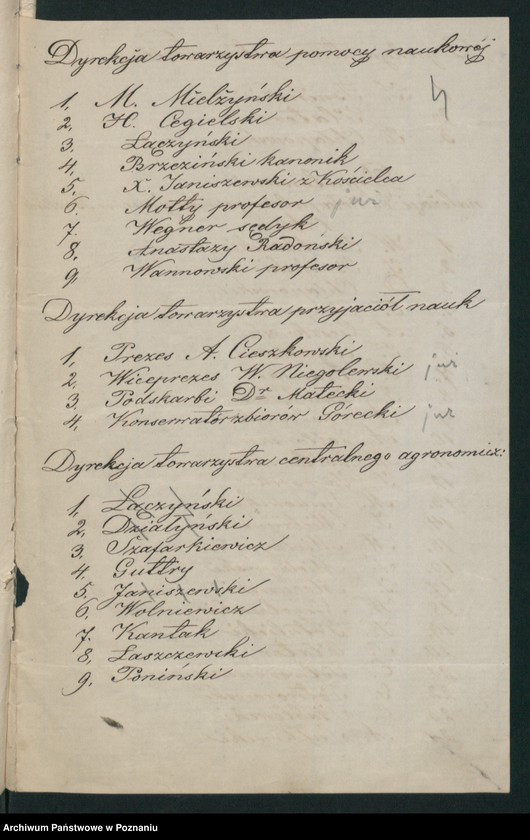 Dyrekcja towarzystwa pomocy naukowéj
1, M. Mielżyński
2, H. Cegielski
3. Łączyński
4, Brzeziński kanonik
5, X. Janiszewski z Kościelca
6. Motty profesor już
7. Wegner sędyk
8, Anastazy Radoński
9, Wannowski profesor
Dyrekcja towarzystwa przyjaciół nauk
1, Prezes A. Cieszkowski
2, Wiceprezes W. Niegolewski już
3, Podskarbi Dr Matecki
4, Konserwator zbiorów Górecki już
Dyrekcja towarzystwa centralnego agronomicz:
1, Łączyński
2, Działyński
3. Szafarkiewicz
4. Guttry
5. Janiszewski
6. Wolniewicz
7. Kantak
8, Łaszczewski
9. Poniński
Archiwum Państwowe w Poznaniu